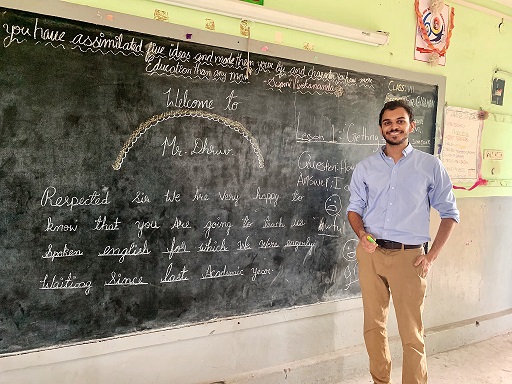 you have assimilated five ideas and made them your life and character you have more
Education than any man
Swami Vivekananda
Welcome to
Mr. Dhruv
Respected sir We are very happy to
know that you are going to teach us
Spoken english for which We were eagerly
Waiting Since last Academic year.
CLASS: VII
Lesson 1: Getting
Question: How
Answer: I a